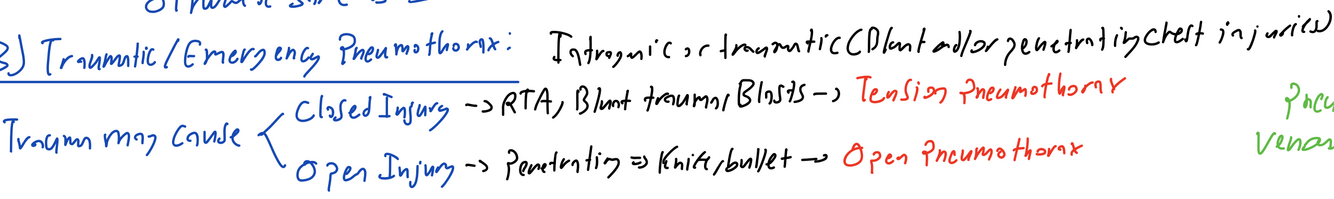 3) Traumatic/Emergency Pneumothorax: Iatrogenic or traumatic (Blunt and/or penetrating chest injuries)
Trauma may cause
Closed Injury -> RTA, Blunt trauma, Blasts -> Tension Pneumothorax
Open Injury -> Penetrating => Knife/bullet -> Open Pneumothorax